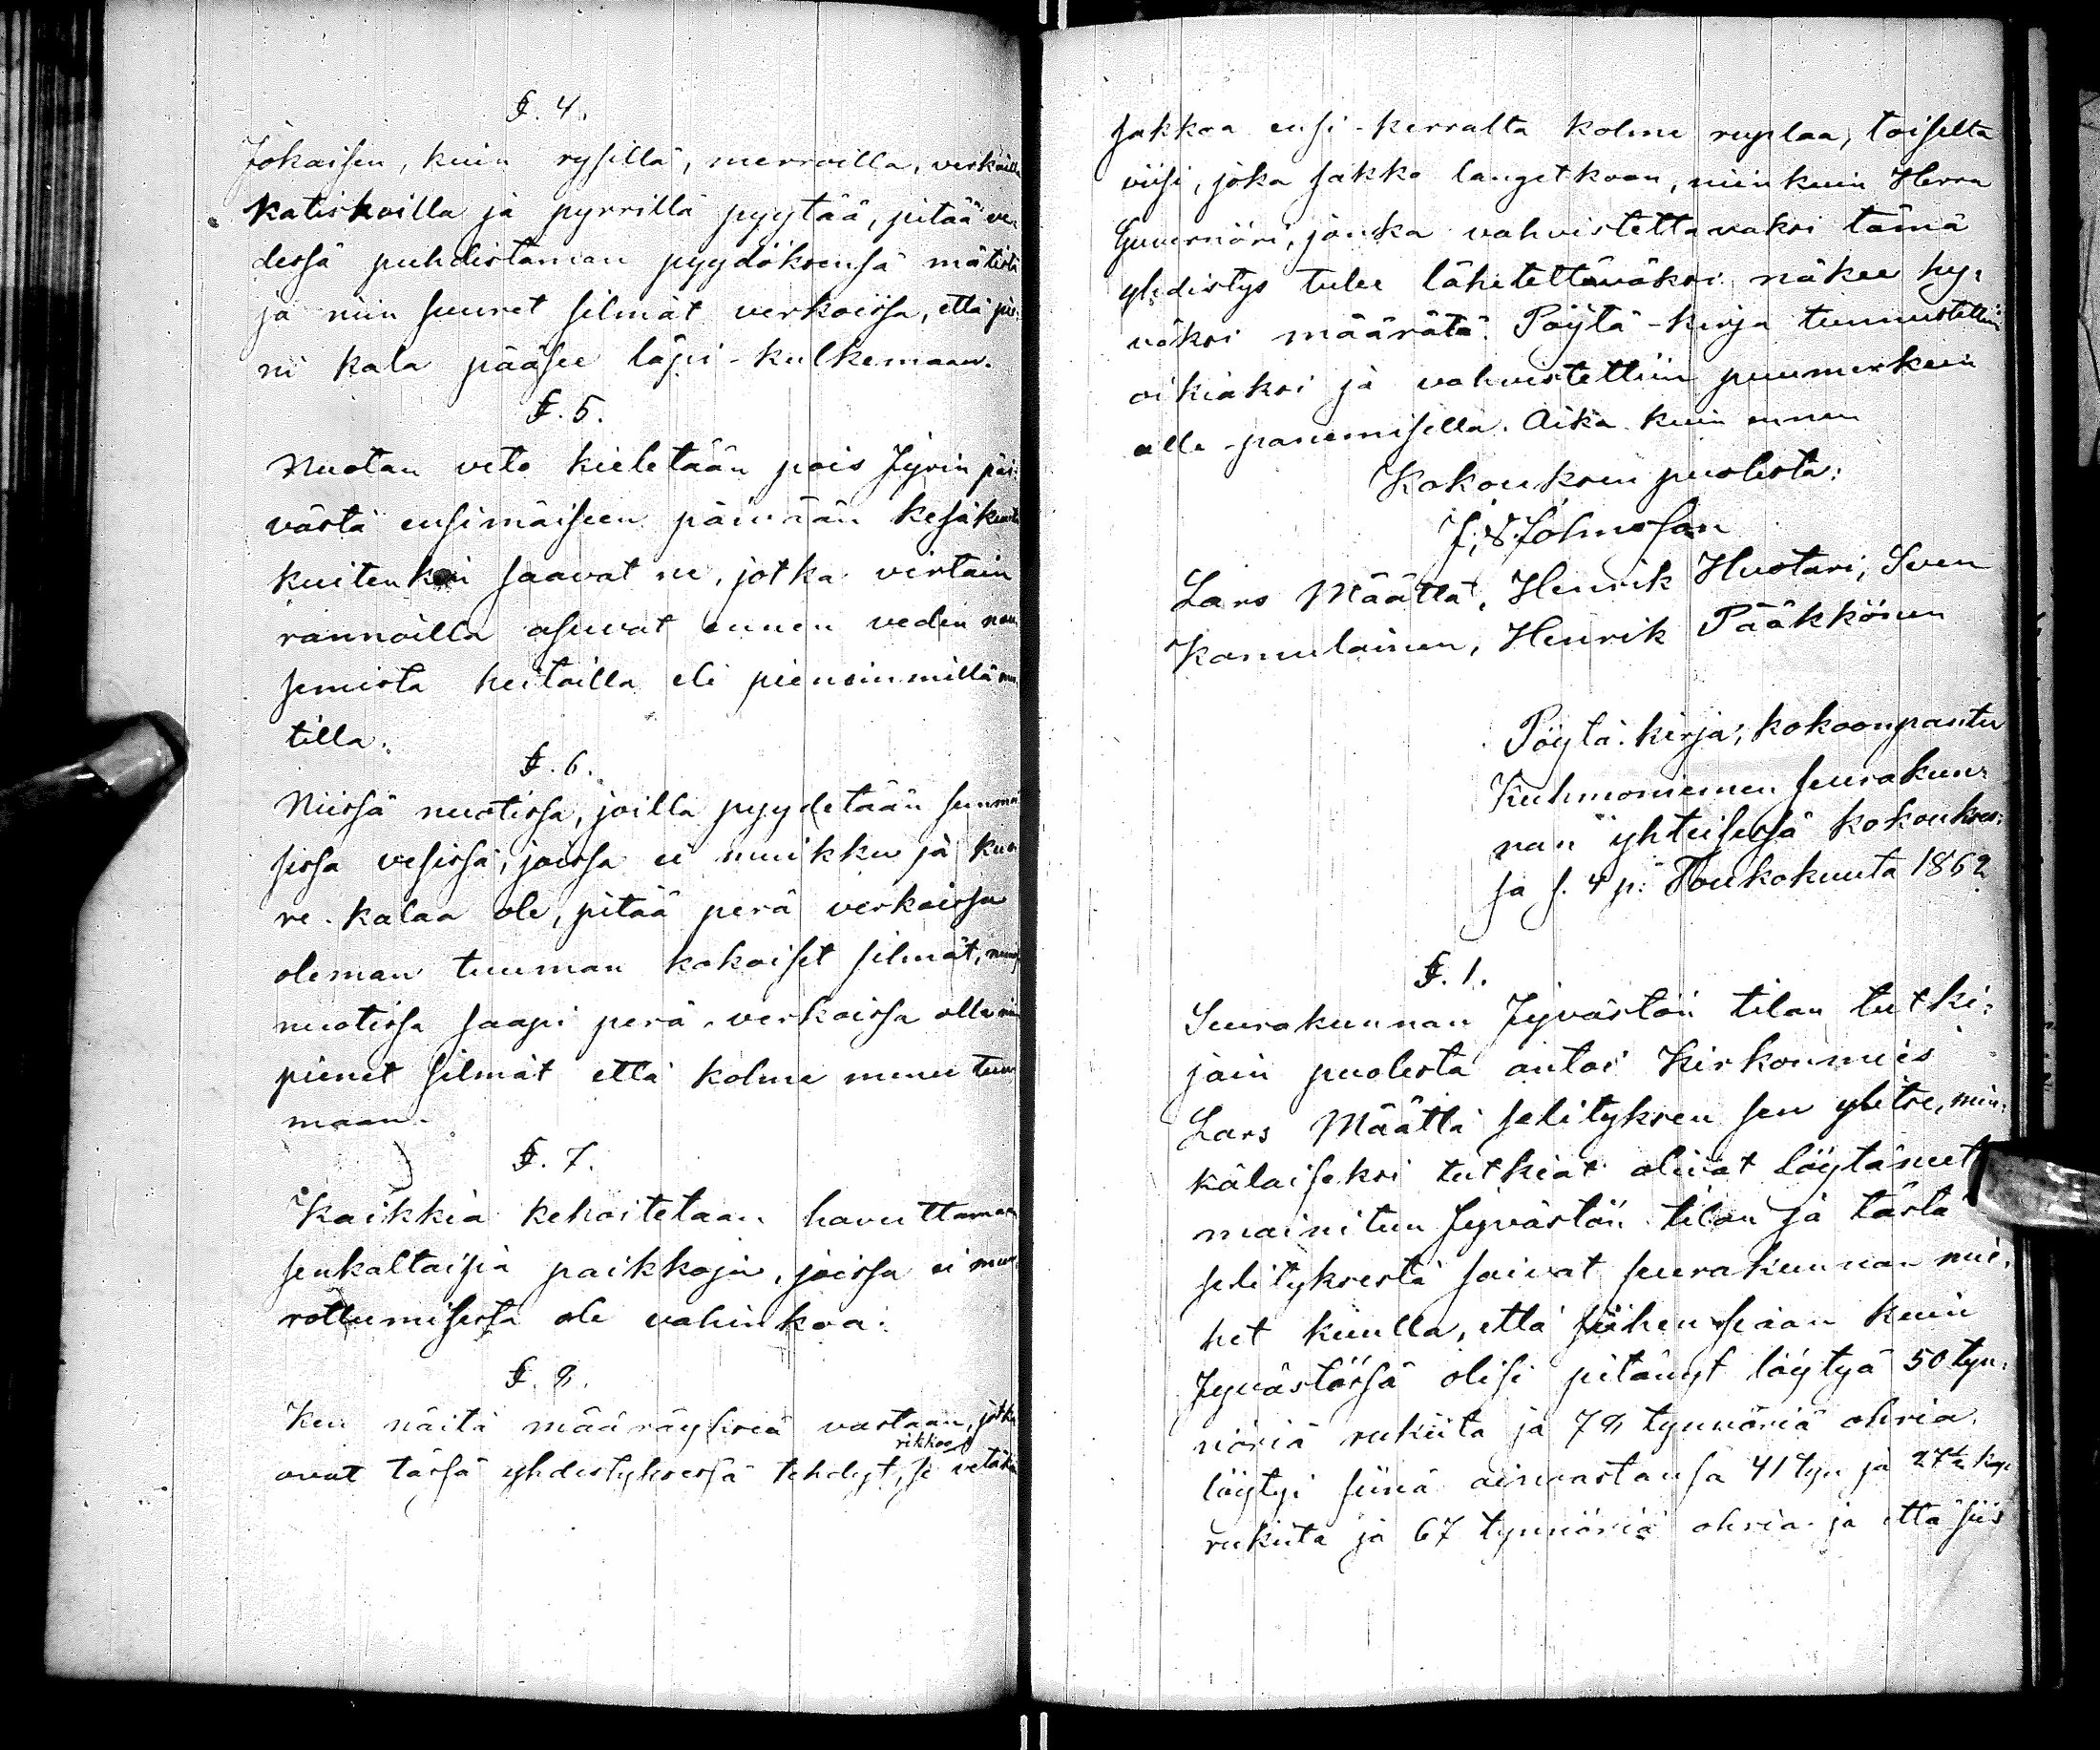 §. 4.
Jokaisen, kuin rysillä, merroilla, verkoilla
katiskoilla ja pyrrillä pyytää, pitää ve
dessä puhdistaman pyydöksensä mätistä
ja niin suuret silmät verkoissa, että pie-
ni kala pääsee läpi-kulkemaan.
§. 5.
Nuotan veto kieletään pois Jyrin päi-
västä ensimäiseen päivään kesäkuuta
kuitenkin saavat ne, jotka virtain
rannoilla asuvat ennen veden nou
semista heitoilla eli pienoimmillä nuo
tilla.
§. 6.
Niissä nuotissa, joilla pyydetään semmoi
sissa vesissä, joissa ei muikku ja kuo
re-kalaa ole, pitää perä verkoissa
oleman tuuman kokoiset silmät, muis
nuotissa saapi perä-verkoissa olla niin
pienet silmät että kolme menee tuu
maan.
§. 7.
Kaikkia kehoitetaan havuttamaan
senkaltaisia paikkoja, joissa ei muu
rottumisessa ole vahinkoa.
§. 8.
Ken näitä määräyksiä vastaan, jotka
rikkoo
ovat tässä yhdistyksessä tehdyt, se vetäkö
sakkoa ensi-kerralta kolme ruplaa, toiselta
viisi, joka sakko langetkoon, niinkuin Herra
Guvernöri, jonka vahvistettavaksi tämä
yhdistys tulee lähetettäväksi näkee hy-
väksi määrätä. Pöytä-kirja tunnustettiin
oikiaksi ja vahvistettiin puumerkein
alle-panemisella. Aika kuin ennen
Kokouksen puolesta:
J. S. Johnsson
Lars Määttä, Henrik Huotari, Sven
Kanulainen, Henrik Pääkkönen
Pöytä-kirja, kokoonpantu
Kuhmoniemen seurakun-
nan yhteisessä kokoukses-
sa s. 4 p: Toukokuuta 1862
§. 1.
Seurakunnan Jyvästön tilan tutki-
jain puolesta antoi Kirkonmies
Lars Määttä selityksen sen ylitse, min-
kälaiseksi tutkiat olivat löytäneet
mainitun Jyvästön tilan ja tästä
selityksestä saivat seurakunnan mie-
het kuulla, että siihen siaan kuin
Jyvästössä olisi pitänyt löytyä 50 tyn-
nöriä rukiita ja 78 tynnöriä ohria
löytyi siinä ainoastansa 41 tyn ja 27½ kap.
rukiita ja 67 tynnöriä ohria ja että siis